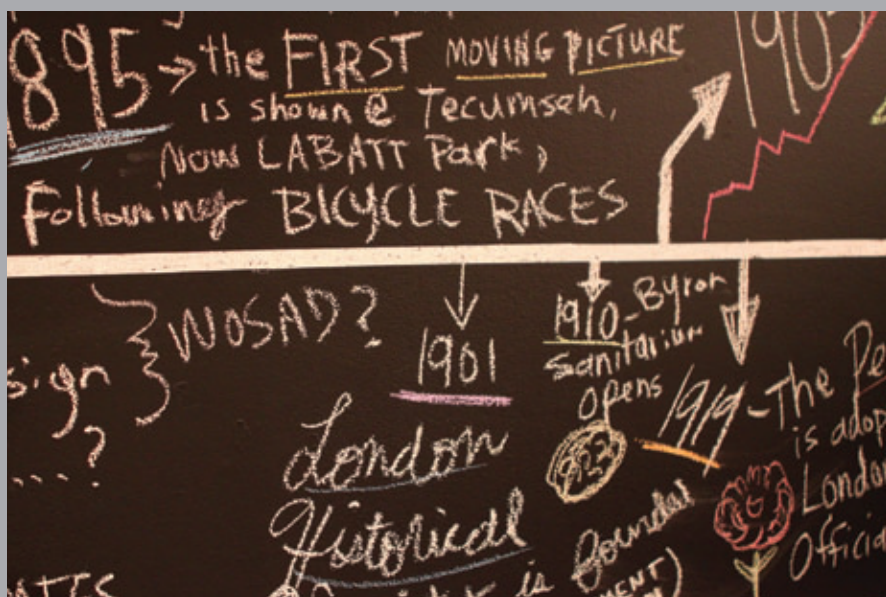 1895 → the FIRST MOVING PICTURE
is shown @ Tecumseh,
Now LABATT Park,
Following BICYCLE RACES
190
sign
....?
WOSAD?
1901
London
Historical
is founded
MENT)
1910 - Byron
Sanitarium
Opens
1919 - The Pe
is adop
London
Officia